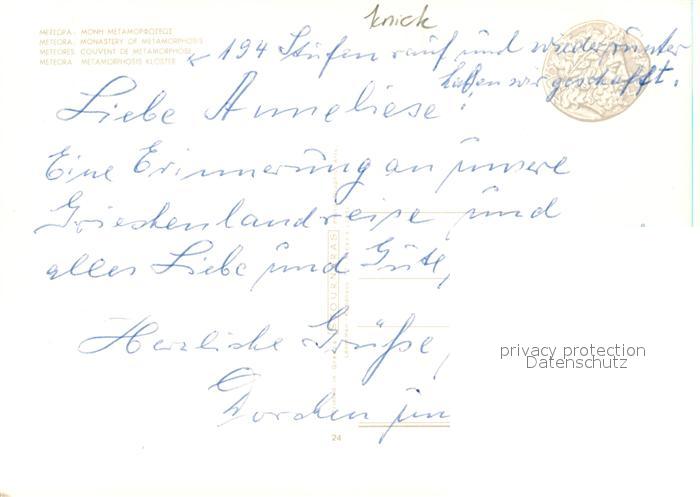 knick
ΜΕΤΕΩΡΑ: ΜΟΝΗ ΜΕΤΑΜΟΡΦΩΣΕΩΣ
METEORA: MONASTERY OF METAMORPHOSIS
METEORES: COUVENT DE METAMORPHOSE
METEORA: METAMORPHOSIS KLOSTER
194 Stufen rauf und wieder runter
haben wir geschafft.
Liebe Anneliese!
Eine Erinnerung an unsere
Griechenlandreise und
alles Liebe und Gute,
Herzliche Grüße,
jun
24
privacy protection
Datenschutz